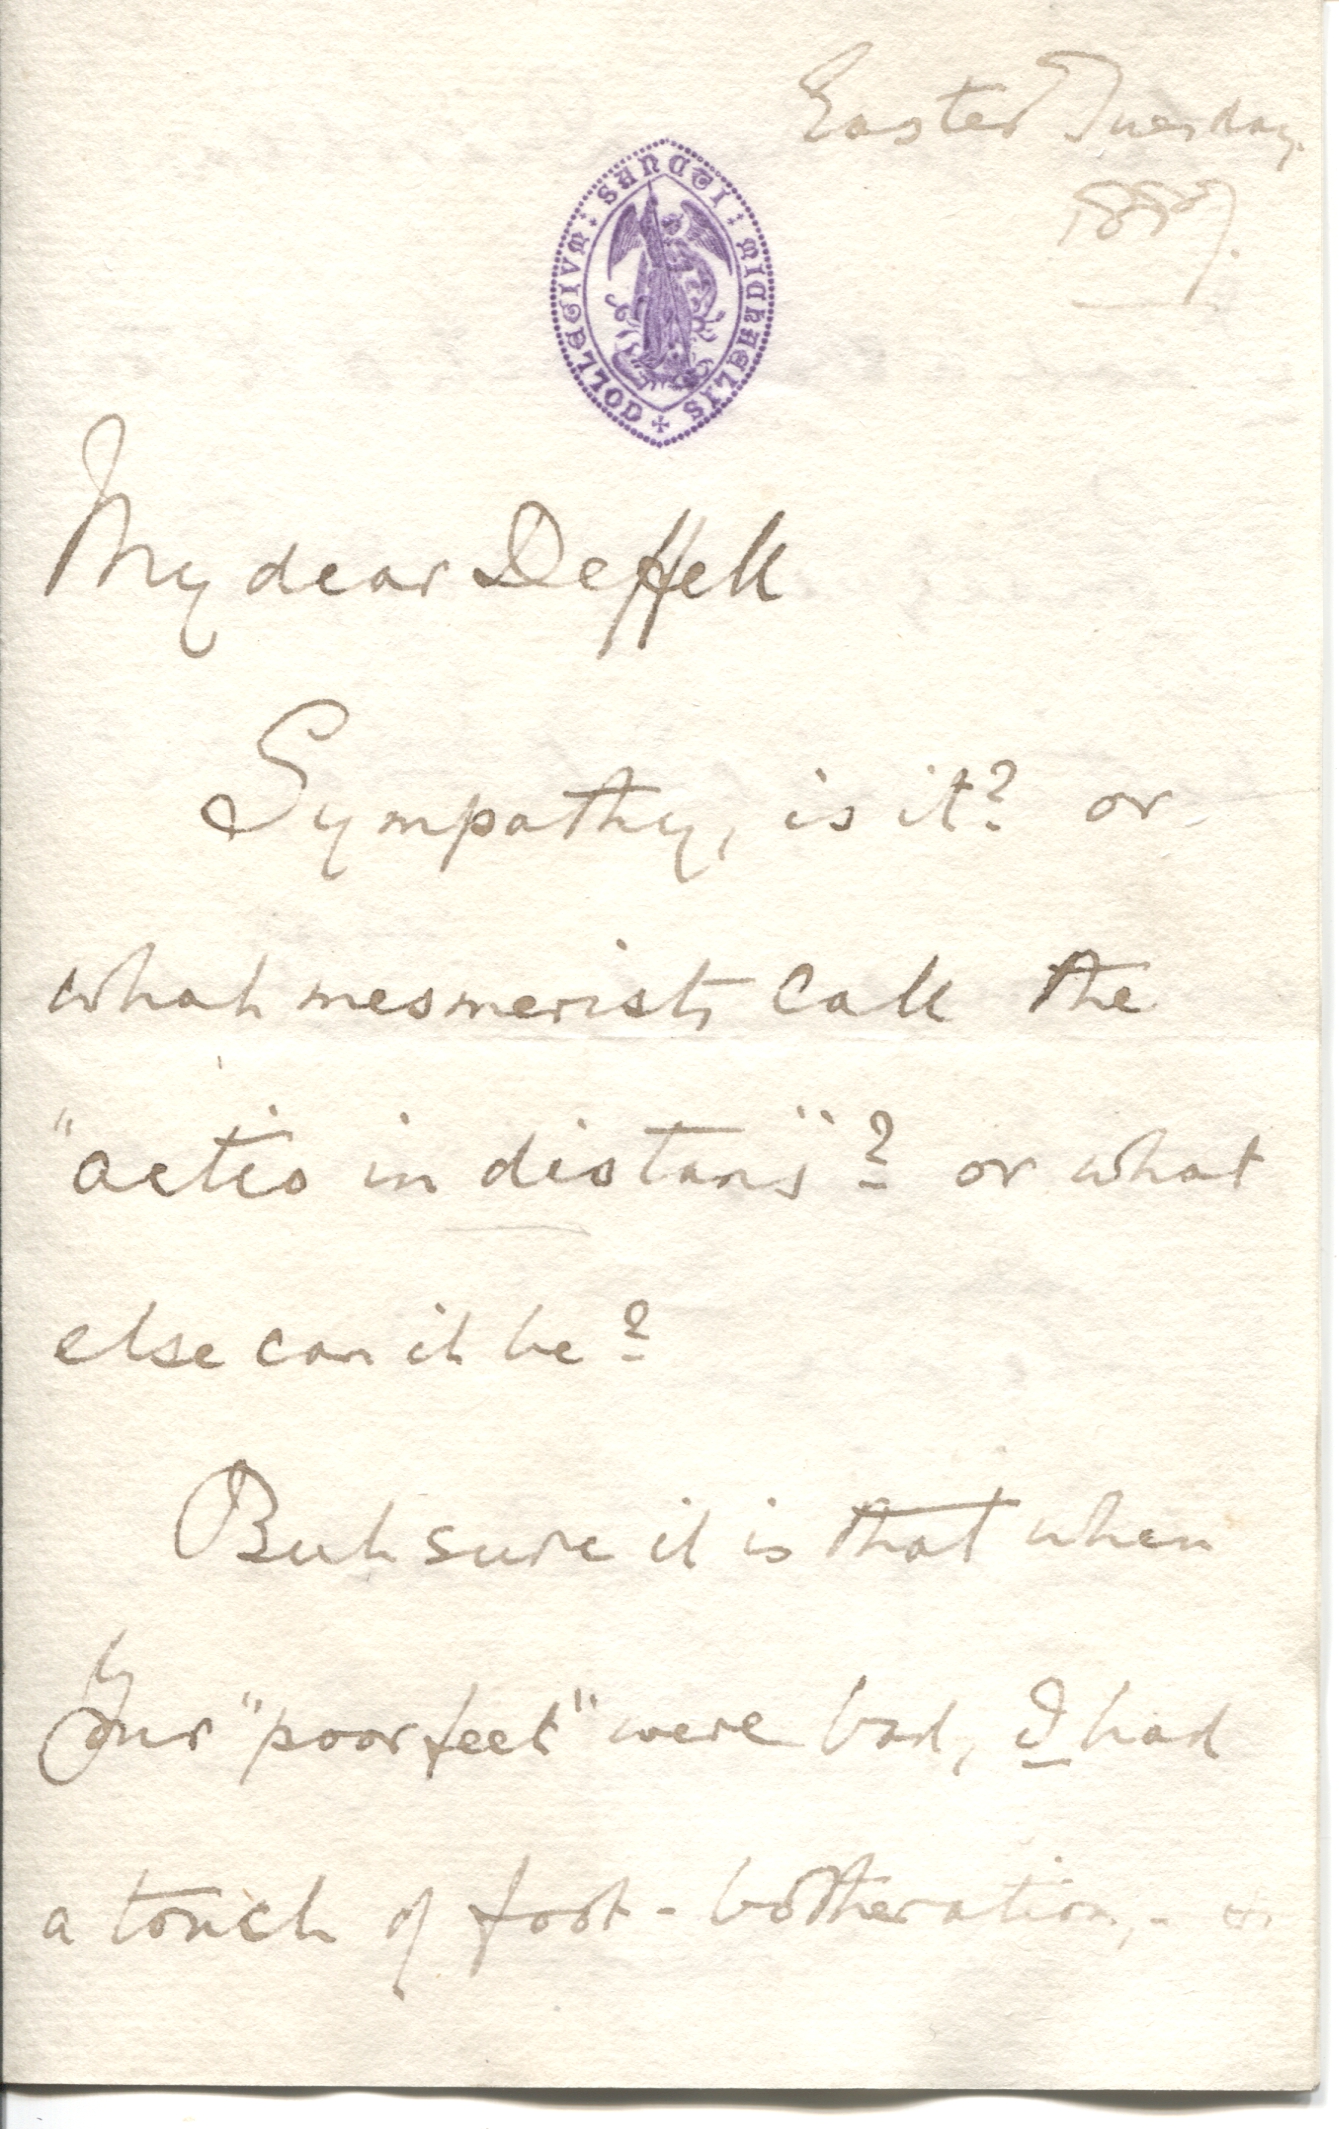 Easter Tuesday.
1887.
COLLEGIUM : SANCTI : MICHAELIS
My dear Deffell
Sympathy, is it? or
what mesmerists call the
"actio in distans"? or what
else can it be?
But sure it is that when
Your "poor feet" were bad, I had
a touch of foot-botheration,- &